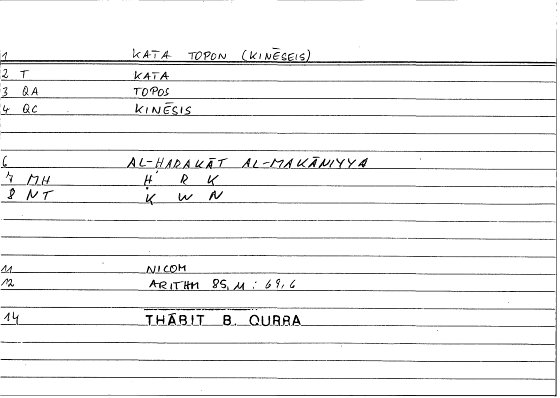 1 KATA TOPON (KINĒSEIS)
2 T KATA
3 QA TOPOS
4 QC KINĒSIS
6 AL-ḤARAKĀT AL-MAKĀNIYYA
7 MH Ḥ R K
8 NT K W N
11 NICOM
12 ARITHM 85, M : 69,6
14 THĀBIT B. QURRA